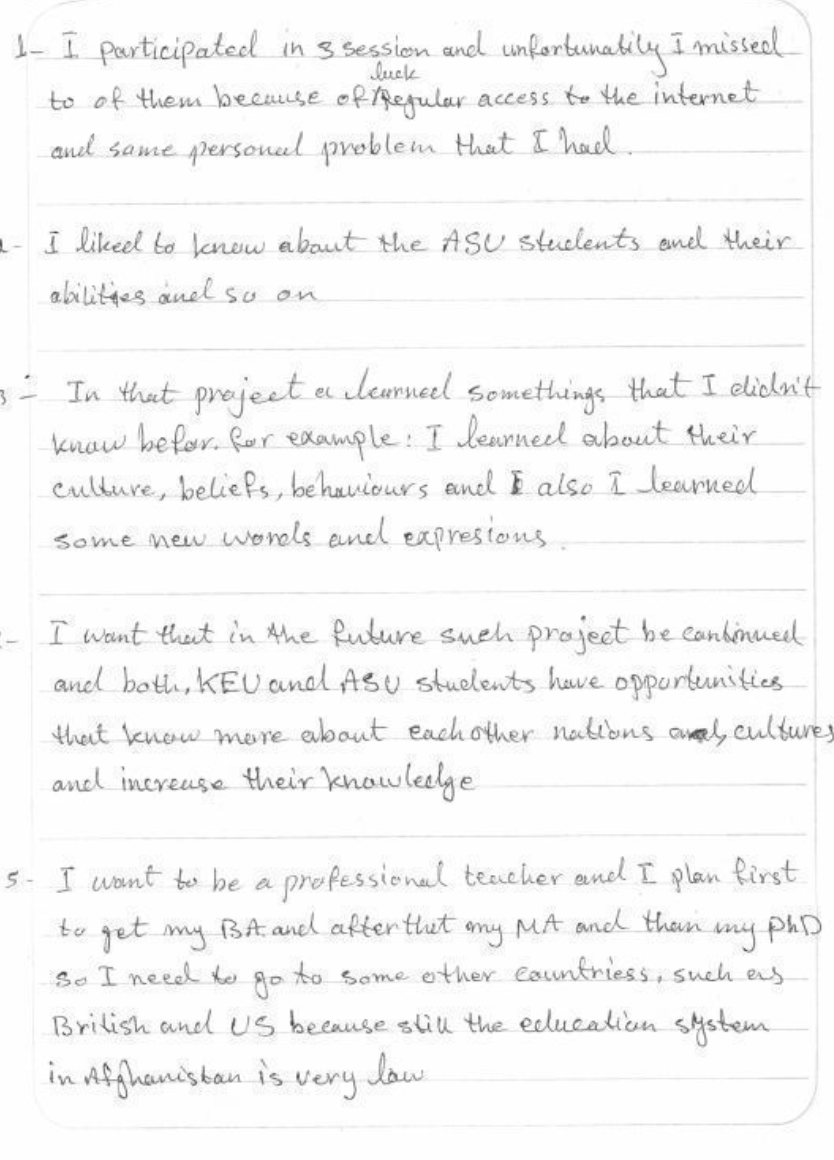 1- I participated in 3 session and unfortunatily I missed
luck
to of them because of Regular access to the internet
and same personal problem that I had.
2- I liked to know about the ASU students and their
abilities and so on
3- In that project a learned somethings that I didn't
know befor. for example: I learned about their
culture, beliefs, behaviours and I also I learned
some new words and expresions.
- I want that in the future such project be continued
and both, KEU and ASU students have opportunities
that know more about each other nations and, cultures
and increase their knowledge
5- I want to be a professional teacher and I plan first
to get my BA and after thet my MA and than my PhD
so I need to go to some other countriess, such as
British and US because still the education system
in Afghanistan is very law